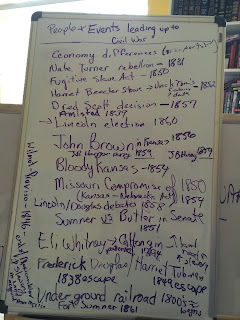 People & Events leading up to
Civil War
Economy differences
Nate Turner rebellion - 1831
Fugitive Slave Act - 1850
Harriet Beecher Stowe - Uncle Tom's Cabin 1852
Dred Scott decision - 1857
Amistad 1839
Lincoln election 1860
John Brown in Kansas 1856
1859 JB Hung 1859
Bloody Kansas - 1854
Missouri Compromise of 1850
(Kansas-Nebraska Act) 1854
Lincoln/Douglas debate 1858
Sumner VS Butler in Senate
1851
Eli Whitney → Cotton gin
patented 1794
Frederick Douglas/Harriet Tubman
1838 escape 1849 escape
Underground railroad 1800's
Fort Sumner 1861
Wilmot Proviso - 1846